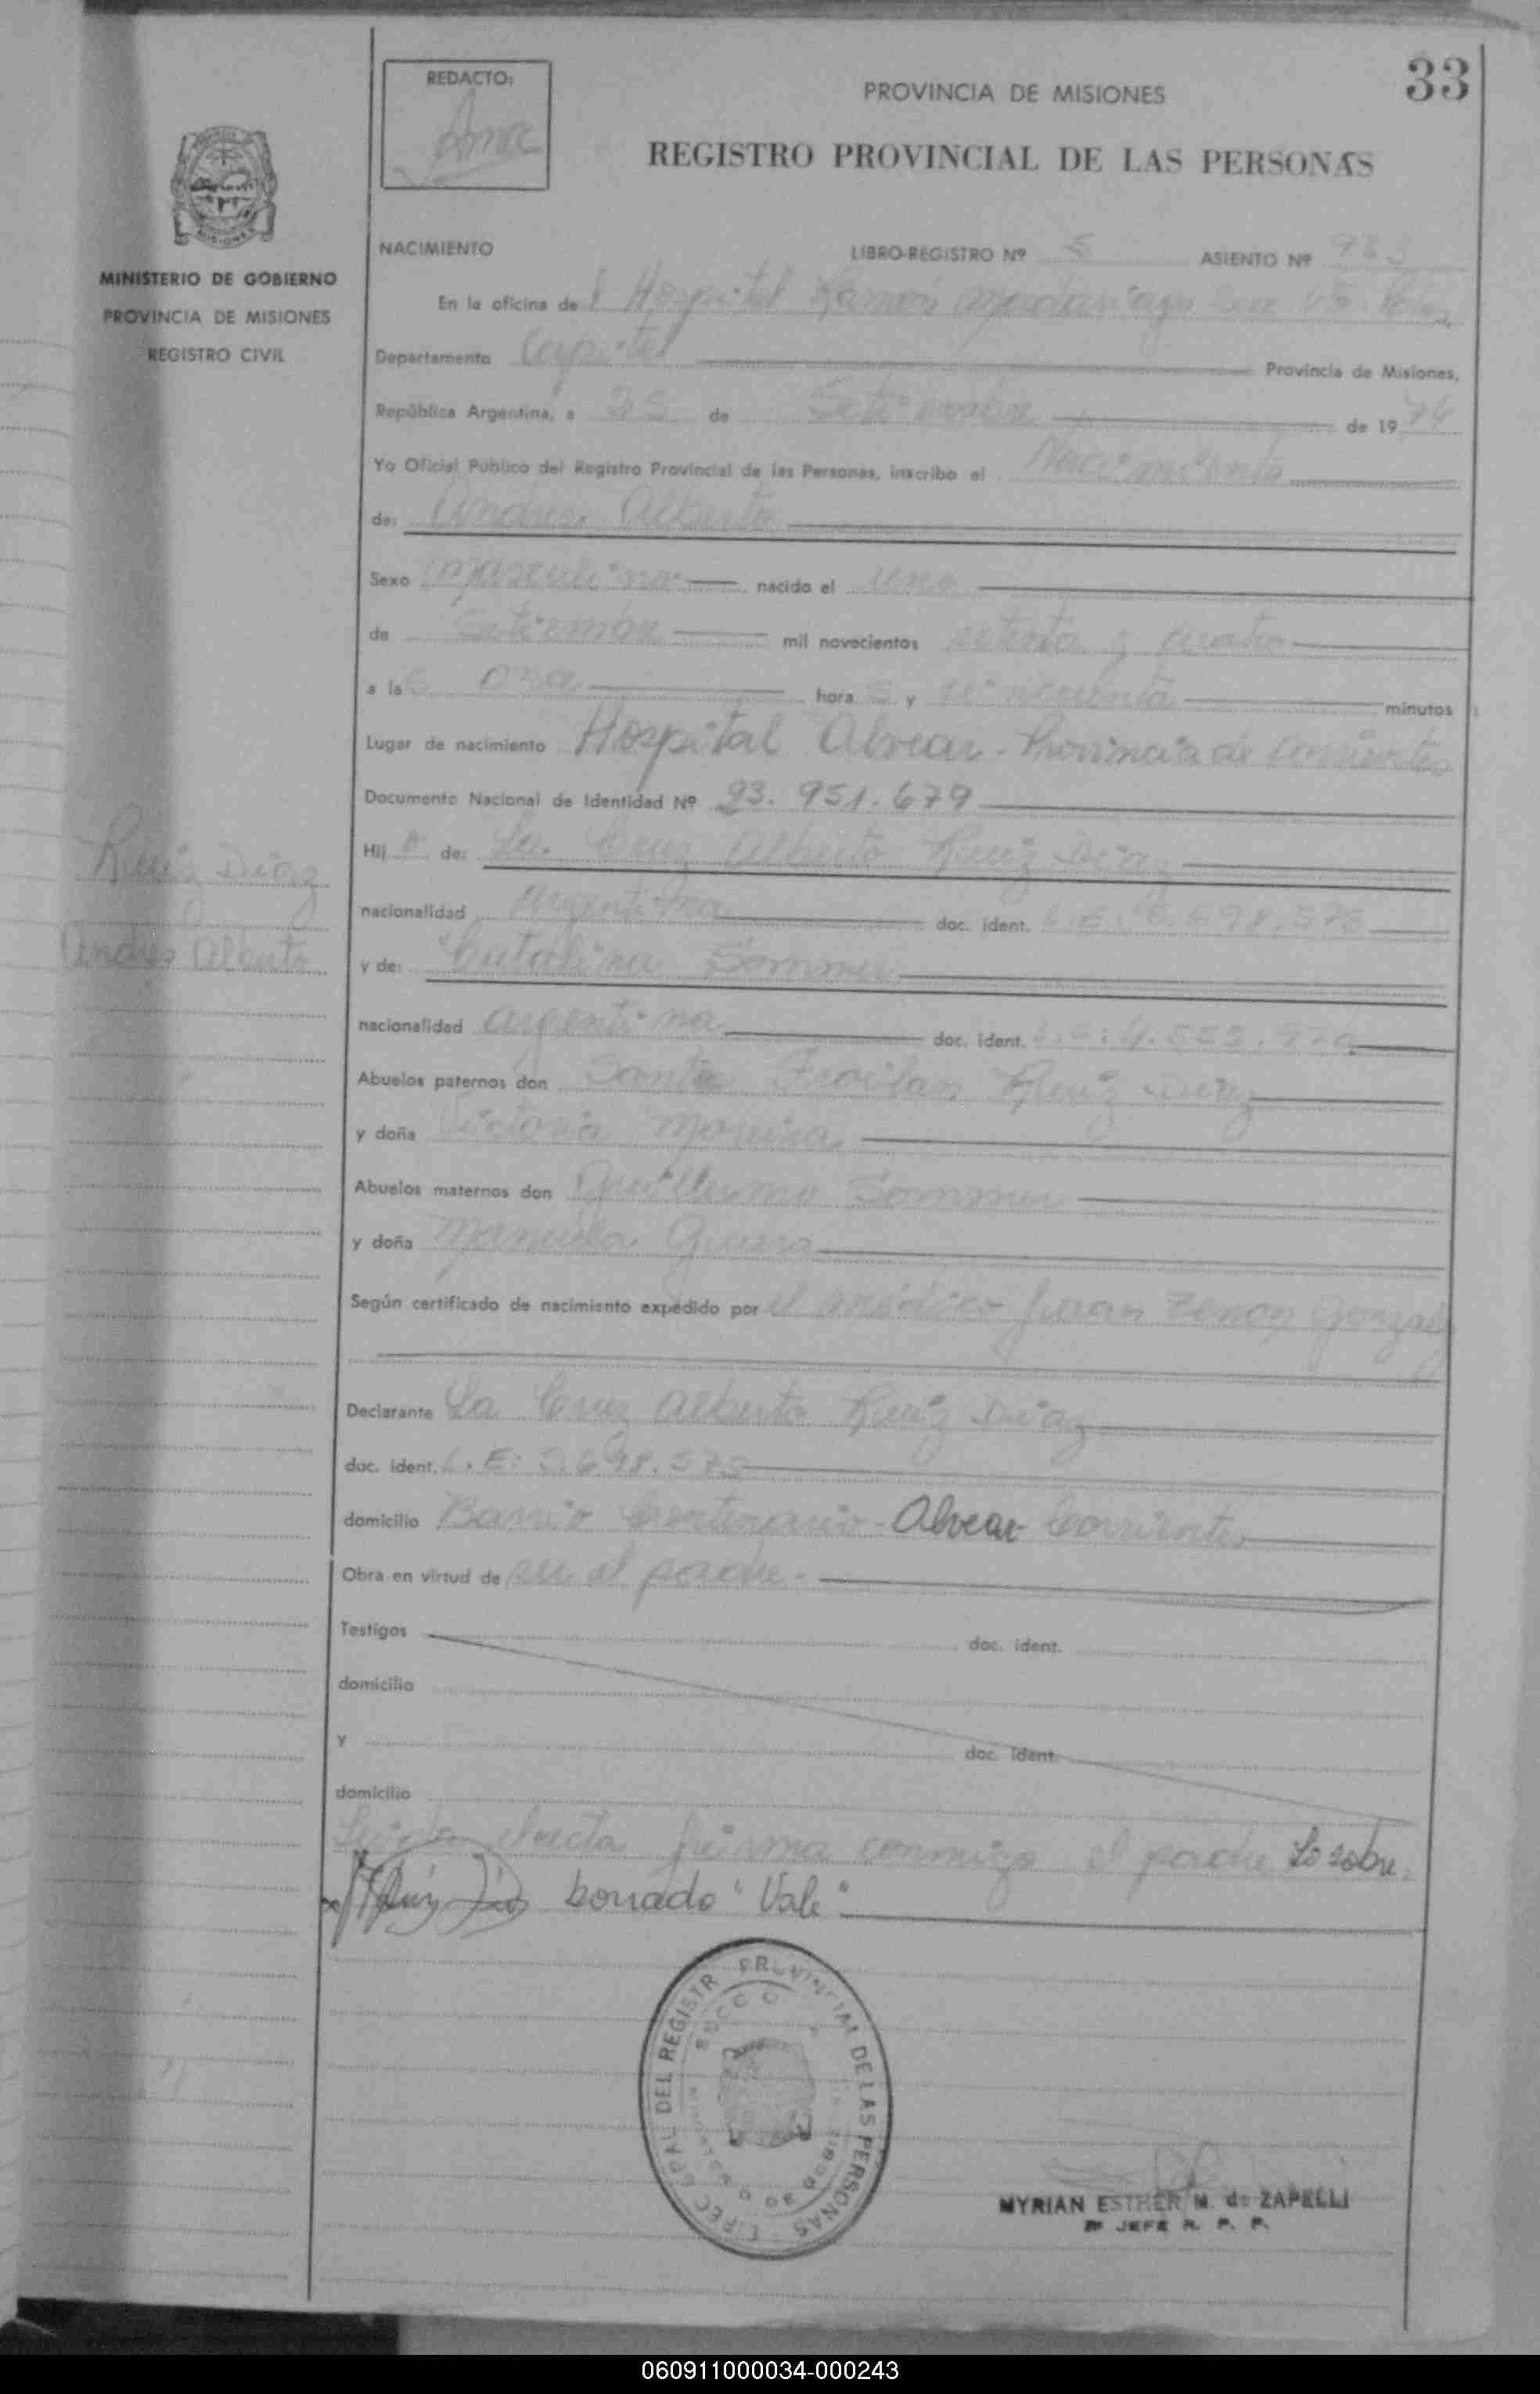 33
REDACTO:
PROVINCIA DE MISIONES
REGISTRO PROVINCIAL DE LAS PERSONAS
MISIONES
MINISTERIO DE GOBIERNO
PROVINCIA DE MISIONES
REGISTRO CIVIL
NACIMIENTO LIBRO-REGISTRO Nº 5 ASIENTO Nº 983
En la oficina del Hospital Ramon Madariaga
Departamento Capital Provincia de Misiones,
República Argentina, a 25 de Setiembre de 1974
Yo Oficial Público del Registro Provincial de las Personas, inscribo el Nacimiento
de: Andres Alberto
Sexo masculino nacido el uno
de Setiembre mil novecientos setenta y cuatro
a las once horas y cincuenta minutos
Lugar de nacimiento Hospital Alvear - Provincia de Corrientes
Documento Nacional de Identidad Nº 23.951.679
Hijo de: La Cruz Alberto Ruiz Diaz
nacionalidad Argentina doc. ident. L.E: 5.698.575
y de: Catalina Sommer
nacionalidad argentina doc. ident.
Abuelos paternos don Santos Froilan Ruiz Diaz
y doña Victoria Moreira
Abuelos maternos don Guillermo Sommer
y doña Manuela
Según certificado de nacimiento expedido por el médico Juan Zenon Gonzalez
Declarante La Cruz Alberto Ruiz Diaz
doc. ident. L.E: 5.698.575
domicilio Barrio Centenario - Alvear Corrientes
Obra en virtud de ser el padre.-
Testigos doc. ident.
domicilio
y doc. ident.
domicilio
Leida el acta firma conmigo el padre Lo sobre
borrado "Vale"
Ruiz Diaz
Andres Alberto
DEL REGISTR PROVINCIAL DE LAS PERSONAS
MYRIAN ESTHER M. de ZAPELLI
JEFE R. P. P.
060911000034-000243